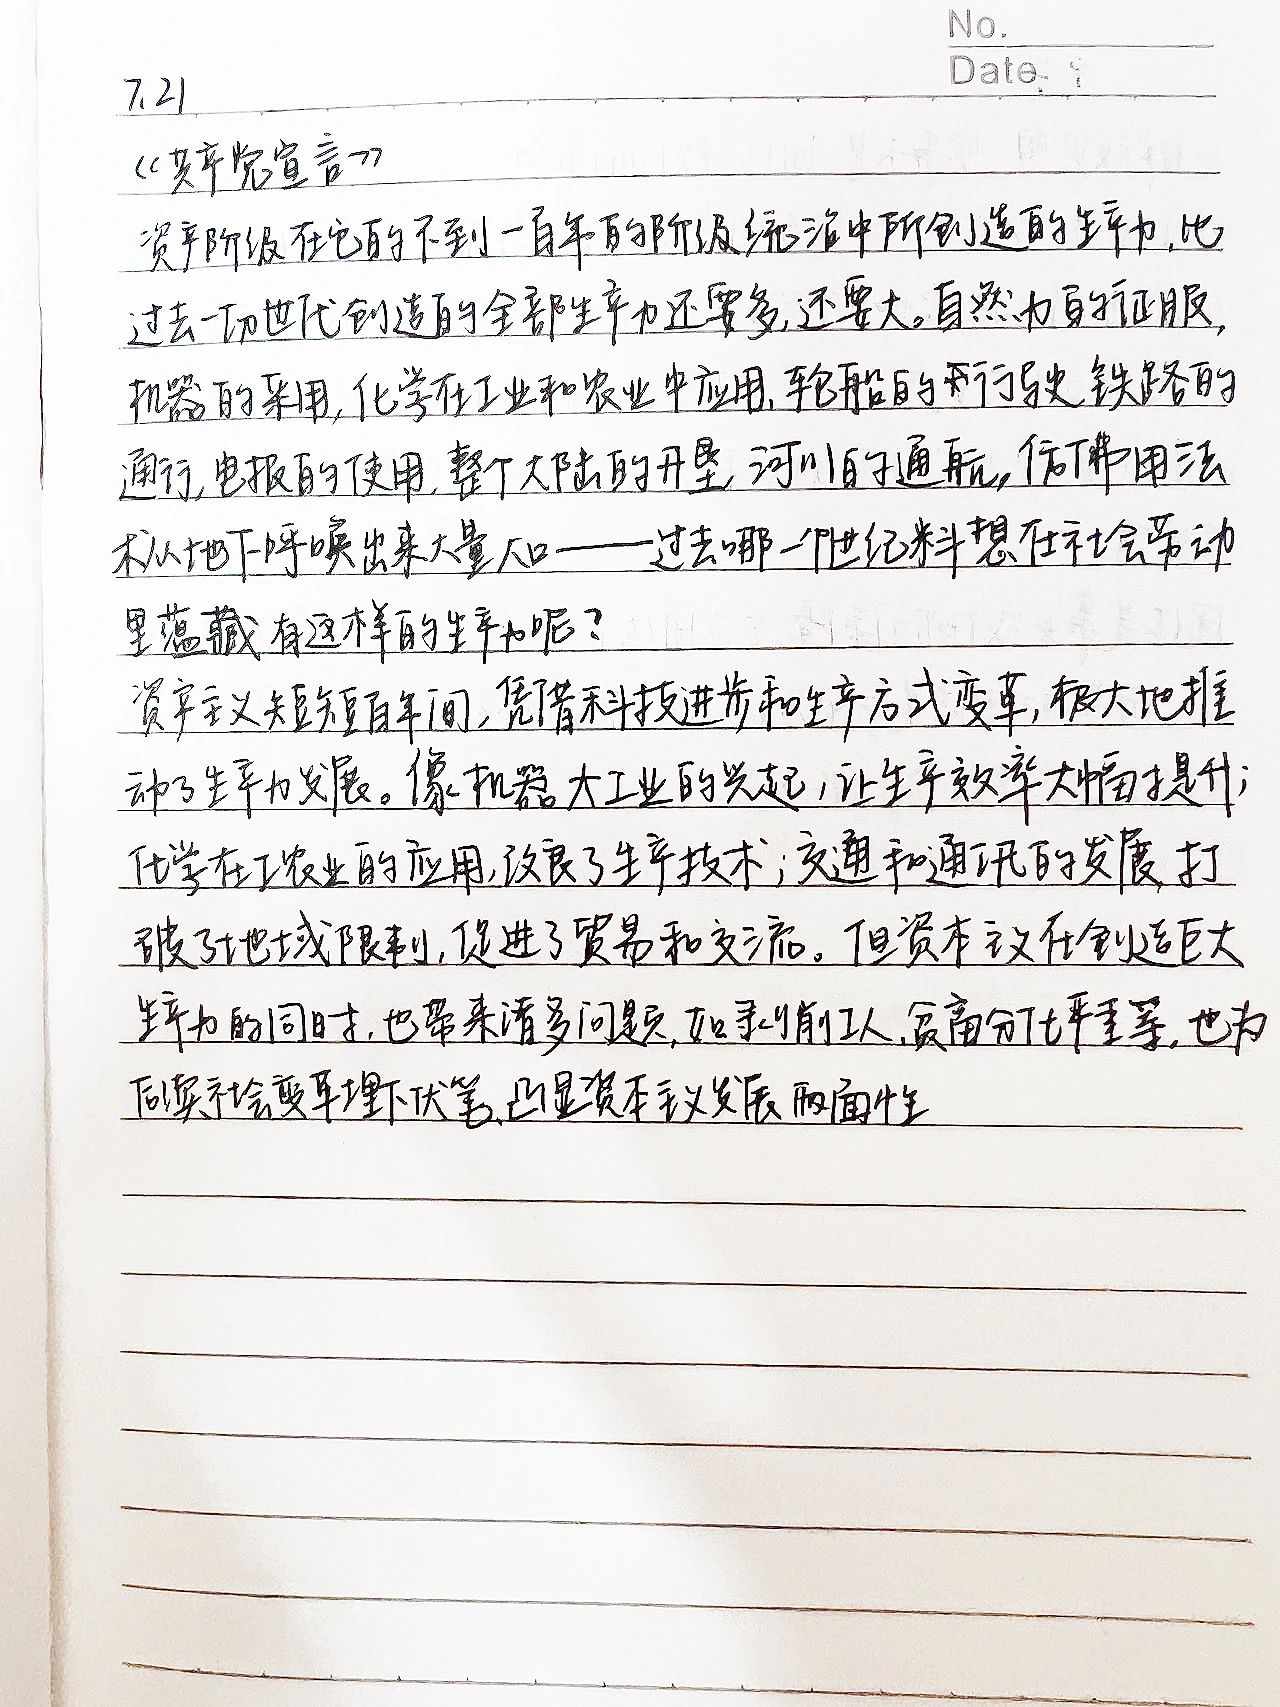 No.
Date
7.21
《共产党宣言》
资产阶级在它的不到一百年的阶级统治中所创造的生产力,比
过去一切世代创造的全部生产力还要多,还要大。自然力的征服,
机器的采用,化学在工业和农业中应用,轮船的行驶,铁路的
通行,电报的使用,整个大陆的开垦,河川的通航,仿佛用法
术从地下呼唤出来大量人口——过去哪一个世纪料想在社会劳动
里蕴藏有这样的生产力呢?
资产主义短短百年间,凭借科技进步和生产方式变革,极大地推
动了生产力发展。像机器大工业的兴起,让生产效率大幅提升;
化学在工农业的应用,改良了生产技术;交通和通讯的发展,打
破了地域限制,促进了贸易和交流。但资本主义在创造巨大
生产力的同时,也带来诸多问题,如剥削工人,贫富分化严重等,也为
后续社会变革埋下伏笔,凸显资本主义发展两面性